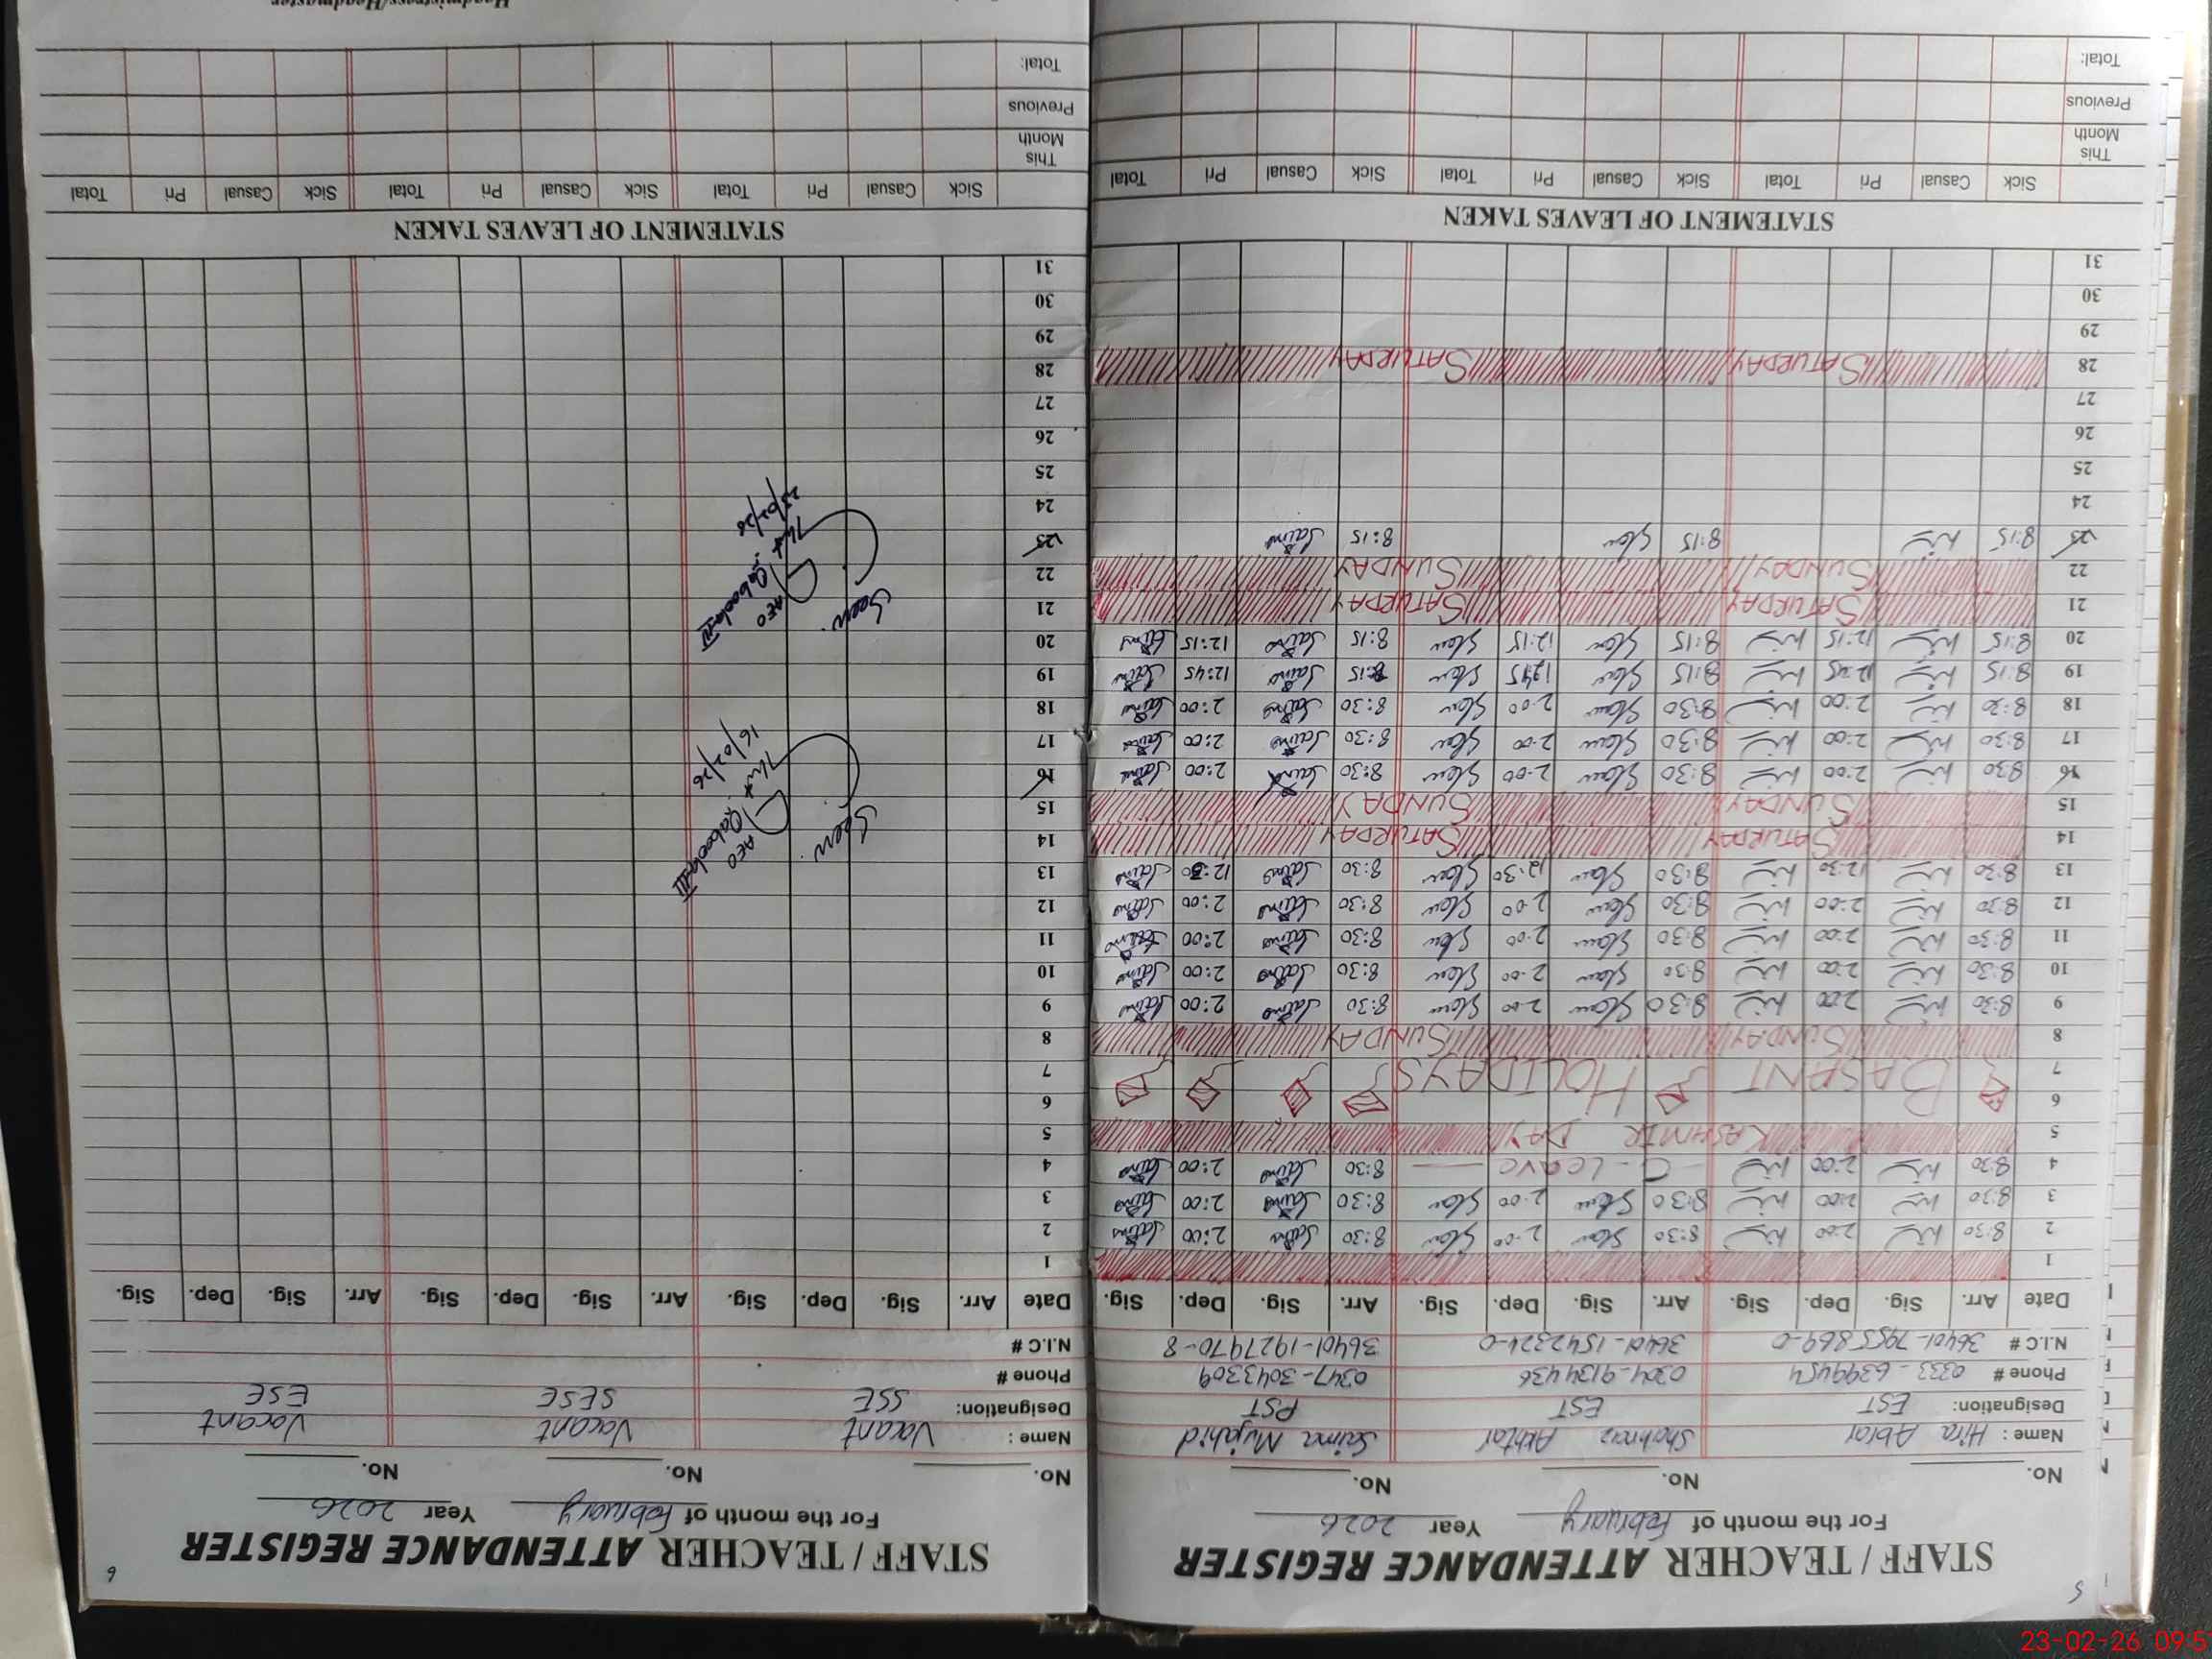 5
STAFF / TEACHER ATTENDANCE REGISTER
For the month of February Year 2026
No. No. No.
Name : Hira Abrar Shahnaz Akhtar Saima Mujahid
Designation: EST EST PST
Phone # 0333-6399454 0304-9134436 0347-3043309
N.I.C # 36401-7955869-0 36401-1542324-0 36401-1927970-8
Date Arr. Sig. Dep. Sig. Arr. Sig. Dep. Sig. Arr. Sig. Dep. Sig.
1
2 8:30 2:00 8:30 2:00 8:30 2:00
3 8:30 2:00 8:30 2:00 8:30 2:00
4 8:30 2:00 C-Leave 8:30 2:00
5 KASHMIR DAY
6 BASANT HOLIDAYS
7
8 SUNDAY SUNDAY
9 8:30 2:00 8:30 2:00 8:30 2:00
10 8:30 2:00 8:30 2:00 8:30 2:00
11 8:30 2:00 8:30 2:00 8:30 2:00
12 8:30 2:00 8:30 2:00 8:30 2:00
13 8:30 12:30 8:30 12:30 8:30 12:30
14 SATURDAY SATURDAY
15 SUNDAY SUNDAY
16 8:30 2:00 8:30 2:00 8:30 2:00
17 8:30 2:00 8:30 2:00 8:30 2:00
18 8:30 2:00 8:30 2:00 8:30 2:00
19 8:15 12:45 8:15 12:45 8:15 12:45
20 8:15 12:15 8:15 12:15 8:15 12:15
21 SATURDAY SATURDAY
22 SUNDAY SUNDAY
23 8:15 8:15 8:15
24
25
26
27
28 SATURDAY SATURDAY
29
30
31
STATEMENT OF LEAVES TAKEN
Sick Casual Pri Total Sick Casual Pri Total Sick Casual Pri Total
This Month
Previous
Total:
6
STAFF / TEACHER ATTENDANCE REGISTER
For the month of February Year 2026
No. No. No.
Name : Vacant Vacant Vacant
Designation: SSE SESE ESE
Phone #
N.I.C #
Date Arr. Sig. Dep. Sig. Arr. Sig. Dep. Sig. Arr. Sig. Dep. Sig.
1
2
3
4
5
6
7
8
9
10
11
12
13
14
15
16
17
18
19
20
21
22
23
24
25
26
27
28
29
30
31
Seen.
AEO
16/02/26
Seen.
AEO
23/02/26
STATEMENT OF LEAVES TAKEN
Sick Casual Pri Total Sick Casual Pri Total Sick Casual Pri Total
This Month
Previous
Total:
Headmistress/Headmaster
23-02-26 09:5